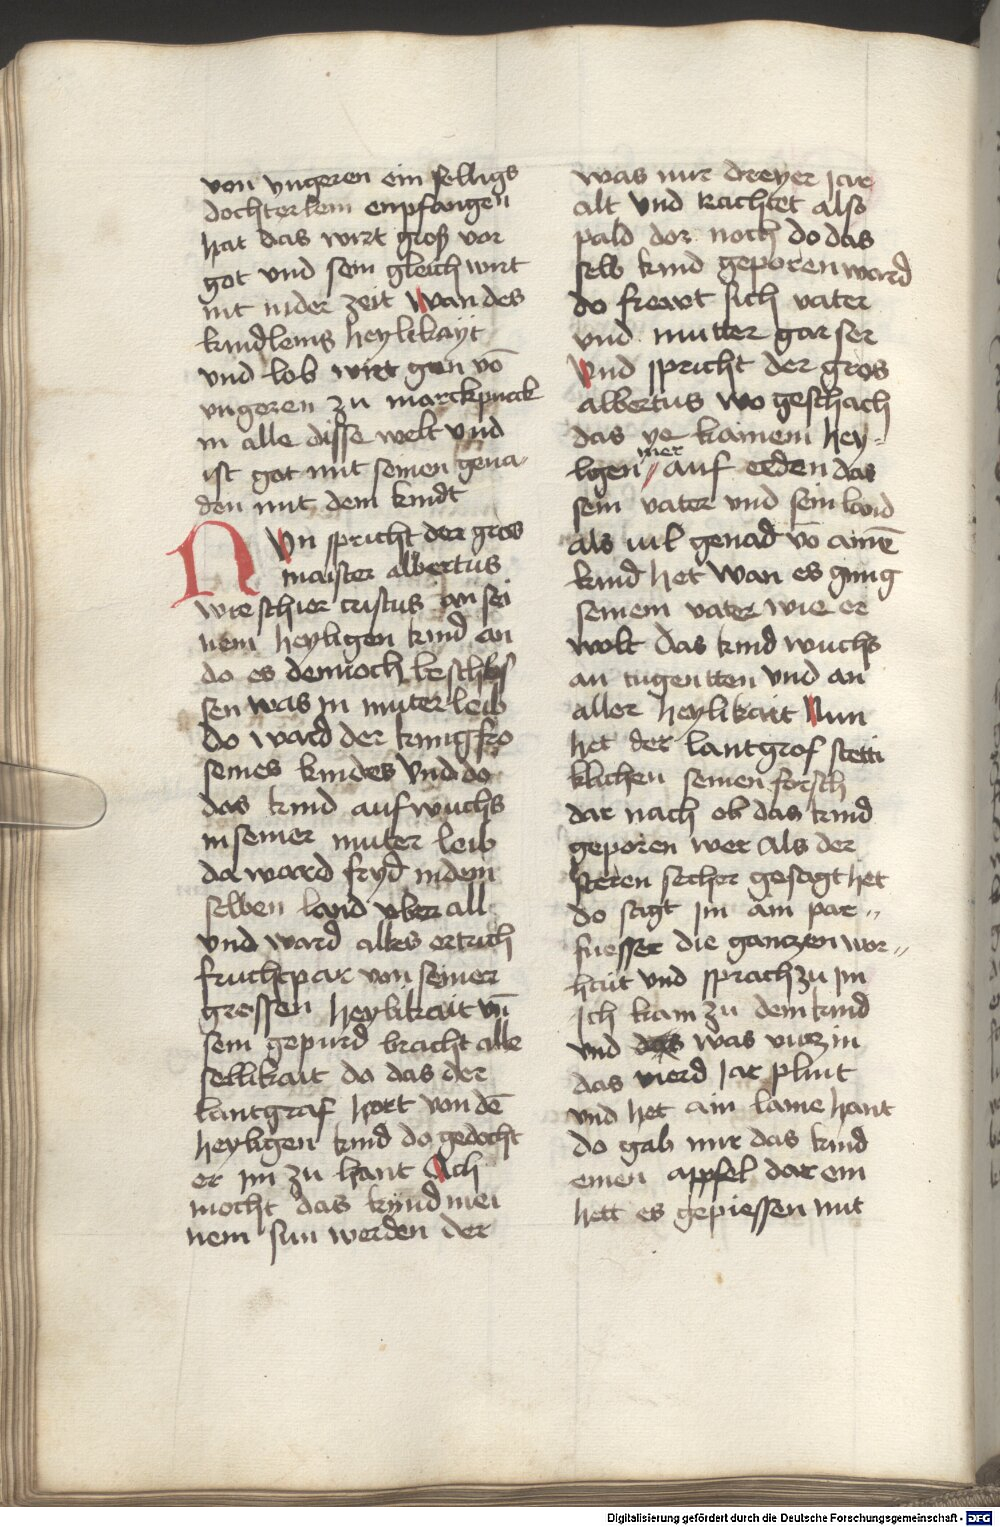 von vngeren ein selligs
dochterlein enpfangen
hat das wirt groß vor
got vnd sein gleich wirt
nit in der zeit Wan des
kindleins heylikayt
vnd lob wirt gen vō
vngeren zu marckpurck
in alle disse welt vnd
ist got mit seinen gena-
den mit dem kindt
Nvn spricht der gros
maister albertus
wie schier cristus an sei
nem heyligen kind an
do es dennoch beschlos
sen was in muter leib
do ward der kunig fro
seines kindes vnd do
das kind auf wuchs
in seiner muter leib
da ward fryd in dem
selben land vber all
vnd ward alles ertrich
fruchtpar von seiner
grossen heylikait vn̄
sein gepurd bracht alle
sellikait do das der
lantgraf hort von dē
heyligen kind do gedocht
er im zu hant Ach
mocht das kynd mei
nem sun werden der
was nur dreyer jar
alt vnd trachtet also
pald dor noch do das
selb kind geporen ward
do frewt sich vater
vnd mutter gar ser
Vnd spricht der gros
albertus wo geschach
das ye kainem hey=
lgen mer auf erden das
sein vater vnd sein land
als uil genad vō ainē
kind het Wan es ging
seinem vater wie er
wolt das kind wuchs
an tugentten vnd an
aller heylikait Nun
het der lantgrof stetti
klichen seinen forsch
dar nach ob das kind
geporen wer Als der
steren secher gesagt het
do sagt im ain par=
fuesser die gantzen wor=
hait vnd sprach zu im
Ich kam zu dem kind
vnd was vntz in
das vierd jar plint
vnd het ain lame hant
do gab mir das kind
einen appfel dar ein
hett es gepiessen mit
Digitalisierung gefördert durch die Deutsche Forschungsgemeinschaft - DFG